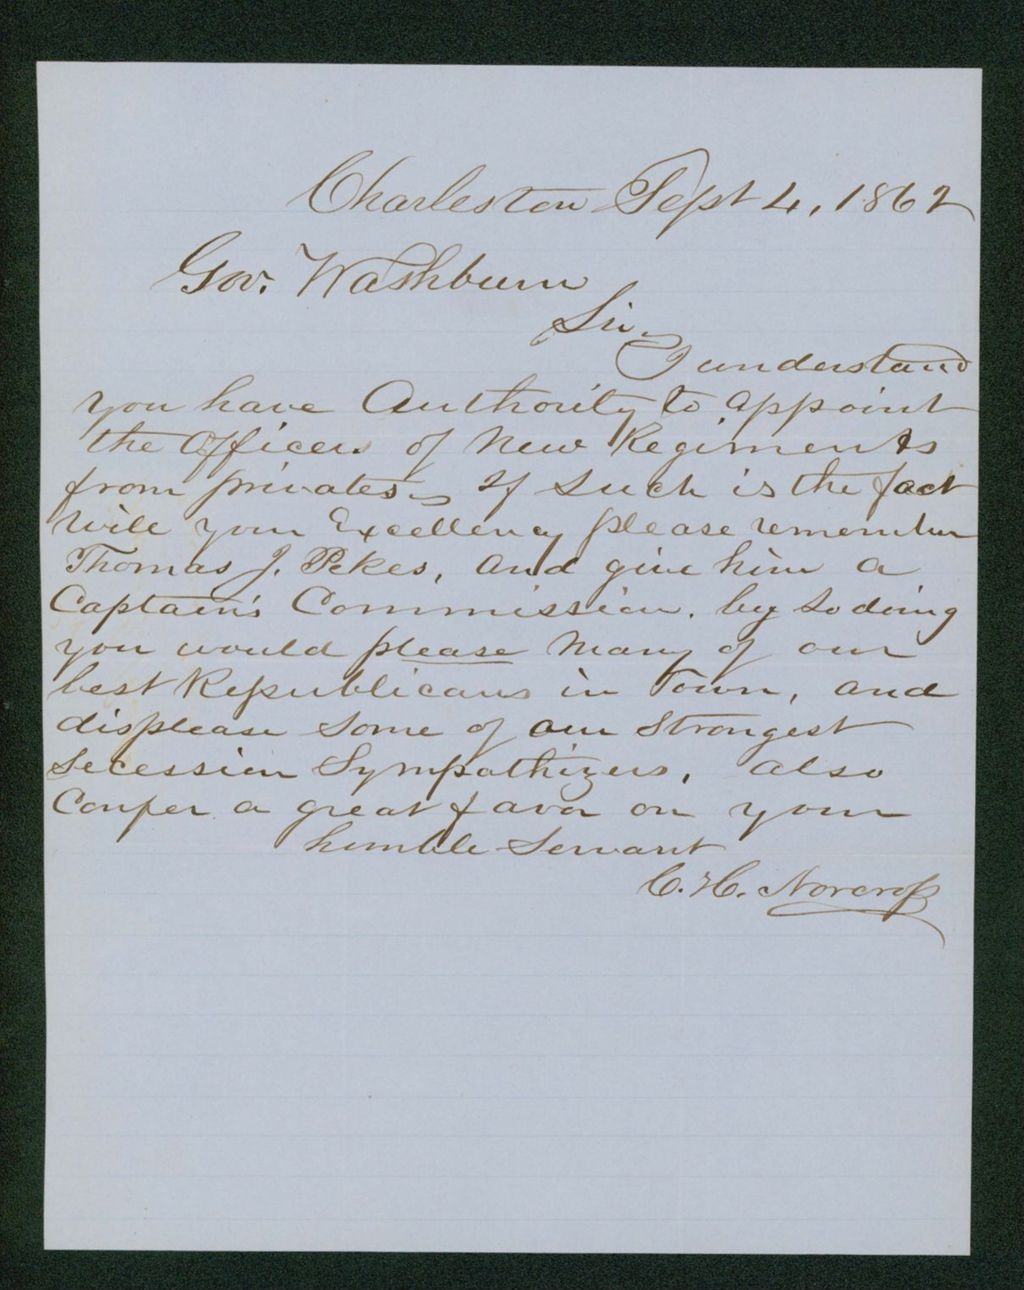 Charleston Sept 4, 1862
Gov. Washburn
Sir,
I understand
you have Authority to appoint
the Officers of New Regiments
from privates, If such is the fact
will your Excellency please remember
Thomas J. Pekes, and give him a
Captain's Commission. by so doing
you would please many of our
best Republicans in Town, and
displease some of our strongest
Secession Sympathizers, also
Confer a great favor on your
humble Servant
C. H. Norcross